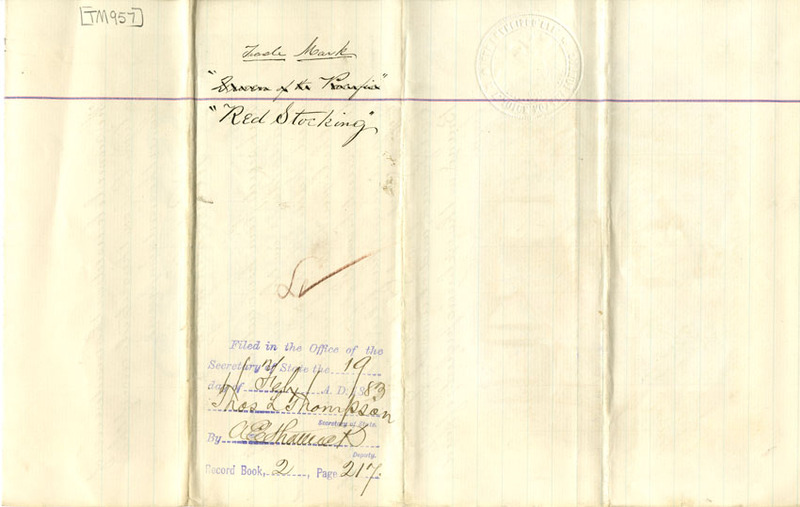 [TM957]
Trade Mark
" of the "
"Red Stocking"
Filed in the Office of the
Secretary of State the 19
day of Feby A. D. 1883
Thos L Thompson
Secretary of State.
By
Deputy.
Record Book, 2, Page 217.